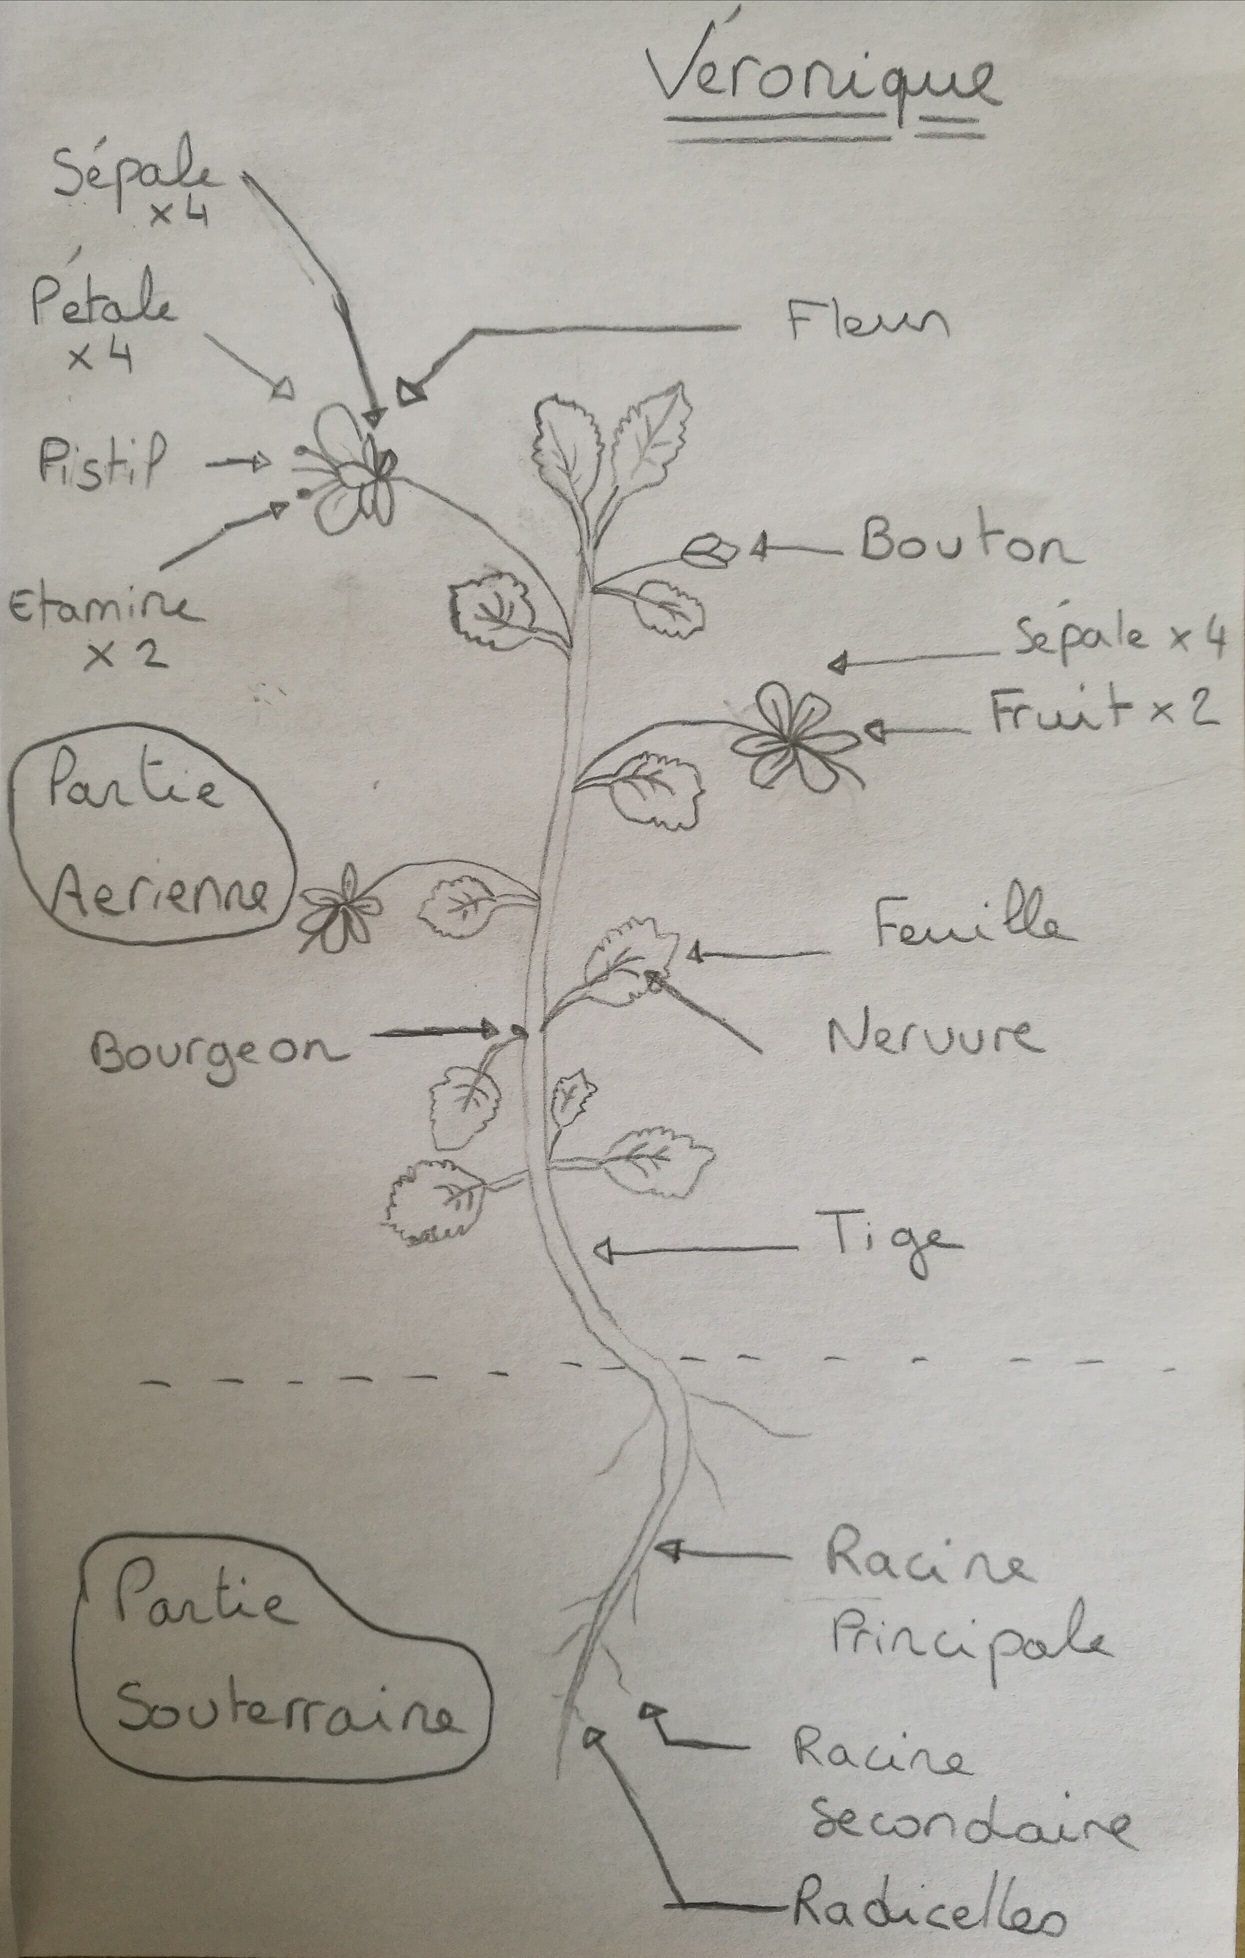 Véronique
Sépale
x4
Pétale
x4
Fleur
Pistil
Bouton
Etamine
x2
Sépale x4
Fruit x2
Partie
Aerienne
Feuille
Bourgeon
Nervure
Tige
Racine
Principale
Partie
Souterraine
Racine
Secondaire
Radicelles